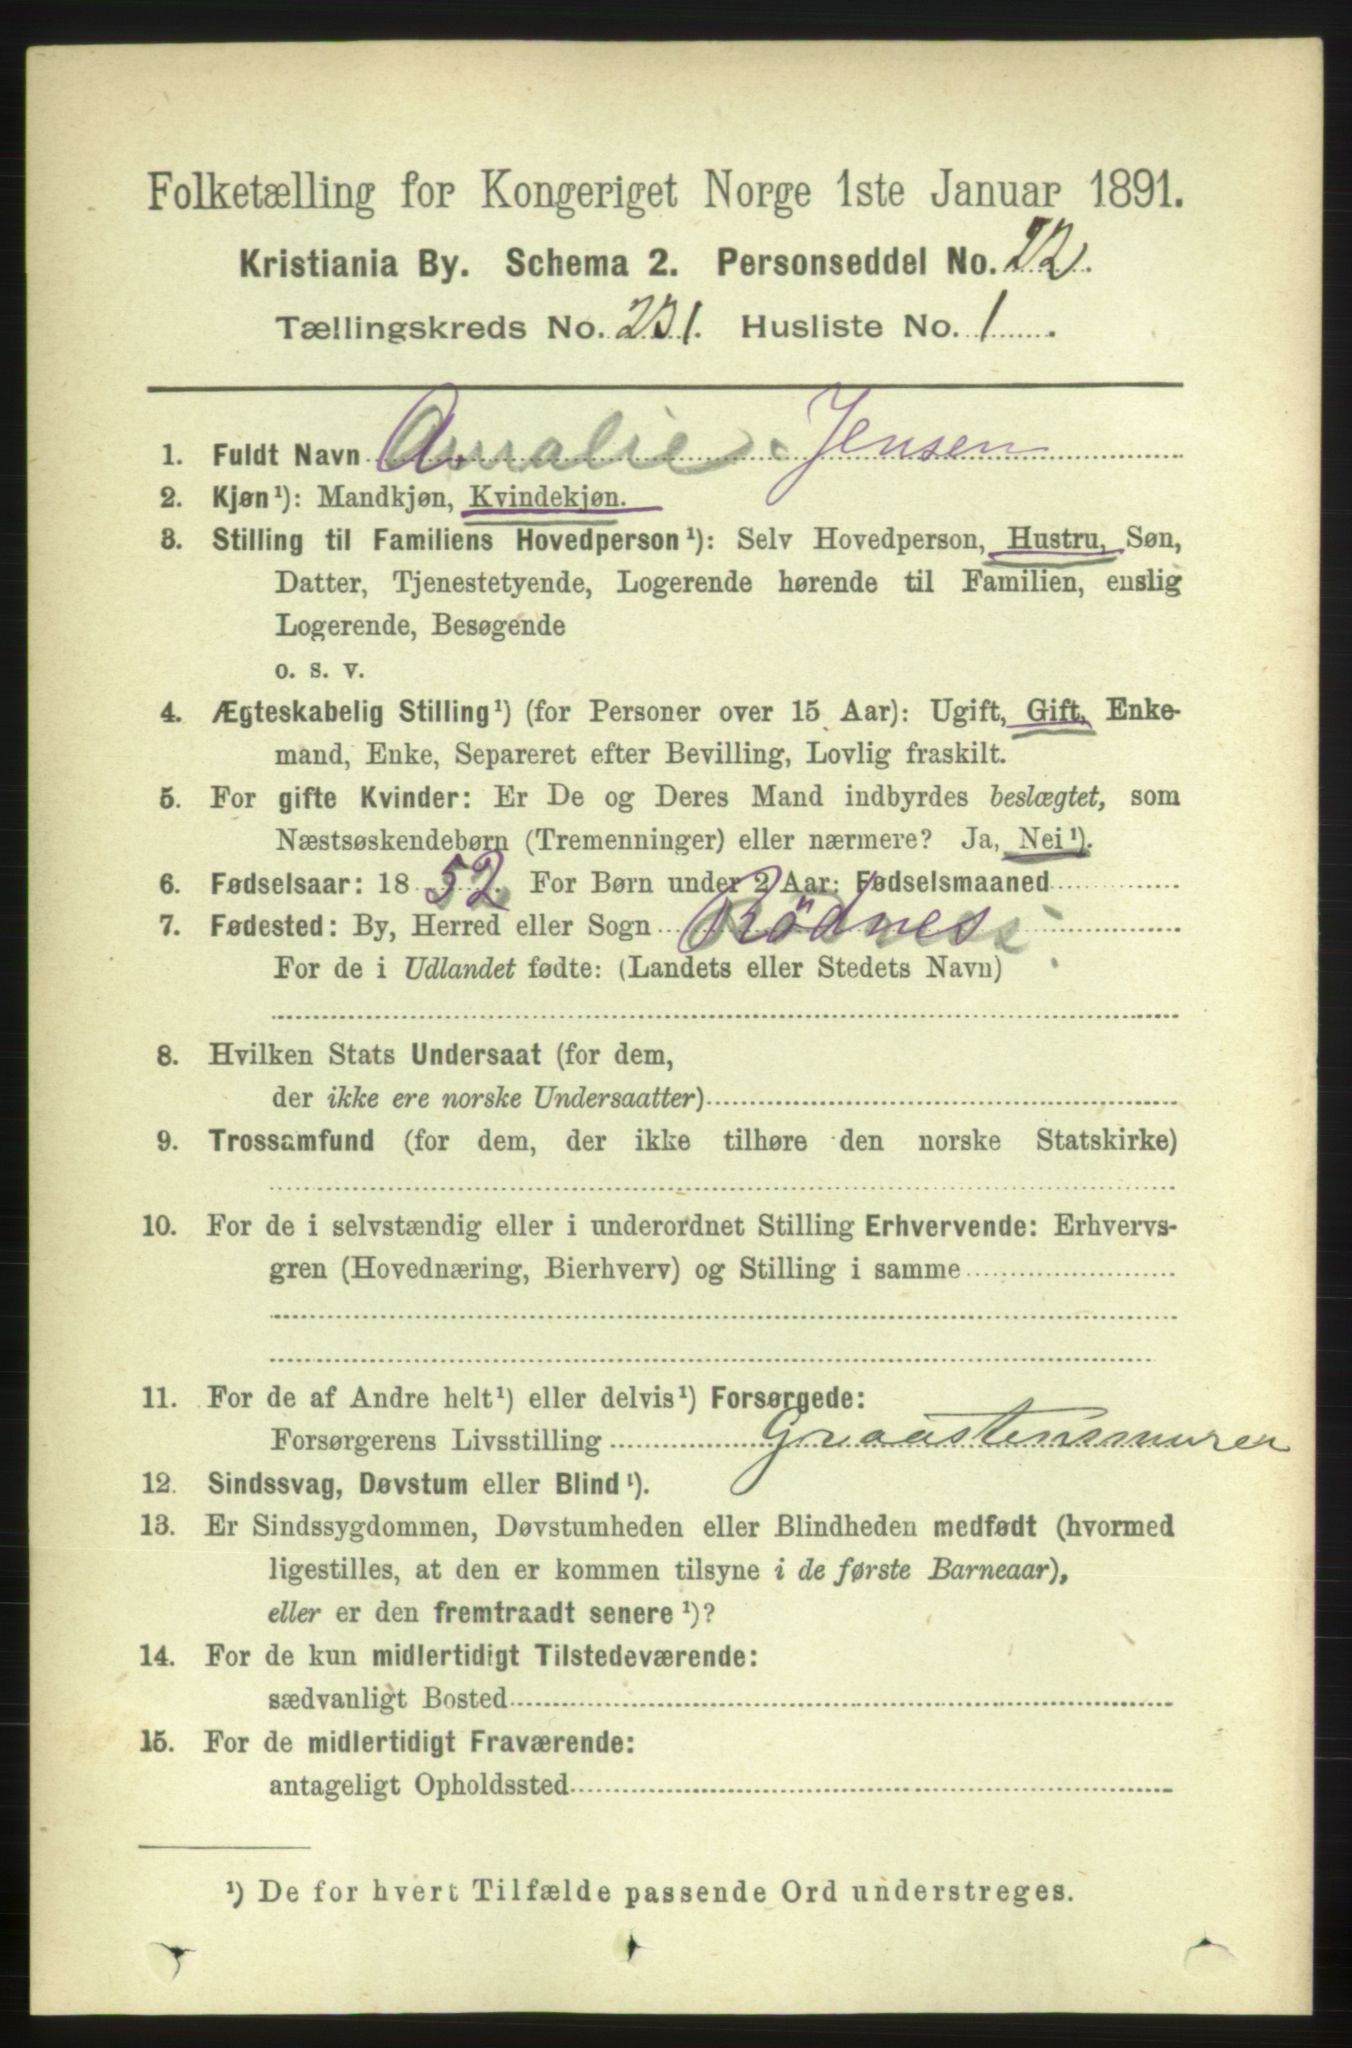 Folketælling for Kongeriget Norge 1ste Januar 1891.
Kristiania By. Schema 2. Personseddel No. 22.
Tællingskreds No. 231. Husliste No. 1.
1. Fuldt Navn Amalie Jensen
2. Kjøn¹): Mandkjøn, Kvindekjøn.
3. Stilling til Familiens Hovedperson¹): Selv Hovedperson, Hustru, Søn,
Datter, Tjenestetyende, Logerende hørende til Familien, enslig
Logerende, Besøgende
o. s. v.
4. Ægteskabelig Stilling¹) (for Personer over 15 Aar): Ugift, Gift, Enke-
mand, Enke, Separeret efter Bevilling, Lovlig fraskilt.
5. For gifte Kvinder: Er De og Deres Mand indbyrdes beslægtet, som
Næstsøskendebørn (Tremenninger) eller nærmere? Ja, Nei¹).
6. Fødselsaar: 1852. For Børn under 2 Aar: Fødselsmaaned
7. Fødested: By, Herred eller Sogn Rödness
For de i Udlandet fødte: (Landets eller Stedets Navn)
8. Hvilken Stats Undersaat (for dem,
der ikke ere norske Undersaatter)
9. Trossamfund (for dem, der ikke tilhøre den norske Statskirke)
10. For de i selvstændig eller i underordnet Stilling Erhvervende: Erhvervs-
gren (Hovednæring, Bierhverv) og Stilling i samme
11. For de af Andre helt¹) eller delvis¹) Forsørgede:
Forsørgerens Livsstilling Graastensmurer
12. Sindssvag, Døvstum eller Blind¹).
13. Er Sindssygdommen, Døvstumheden eller Blindheden medfødt (hvormed
ligestilles, at den er kommen tilsyne i de første Barneaar),
eller er den fremtraadt senere¹)?
14. For de kun midlertidigt Tilstedeværende:
sædvanligt Bosted
15. For de midlertidigt Fraværende:
antageligt Opholdssted
¹) De for hvert Tilfælde passende Ord understreges.